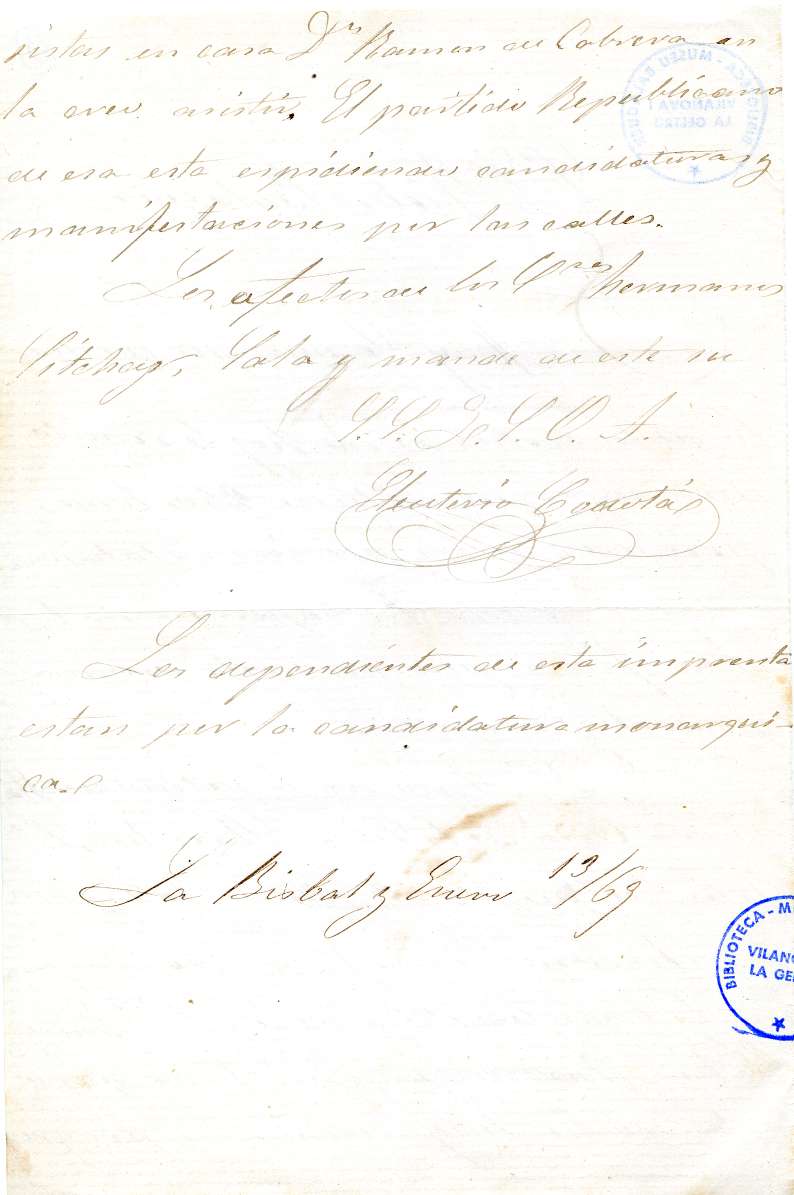 ristas en casa Dn Ramon de Cabrera en
la creo asistir. El partido Republicano
de esa esta espidiendo candidaturas y
manifestaciones por las calles.
Los afectos de los Sres hermanos
Sitchar, Sala y mande de este su
S. S. Q. S. O. A.
Eleuterio
Los dependientes de esta imprenta
estan por la candidatura monarqui-
ca.
La Bisbal y Enero 13/69
BIBLIOTECA - M
VILANO
LA GE